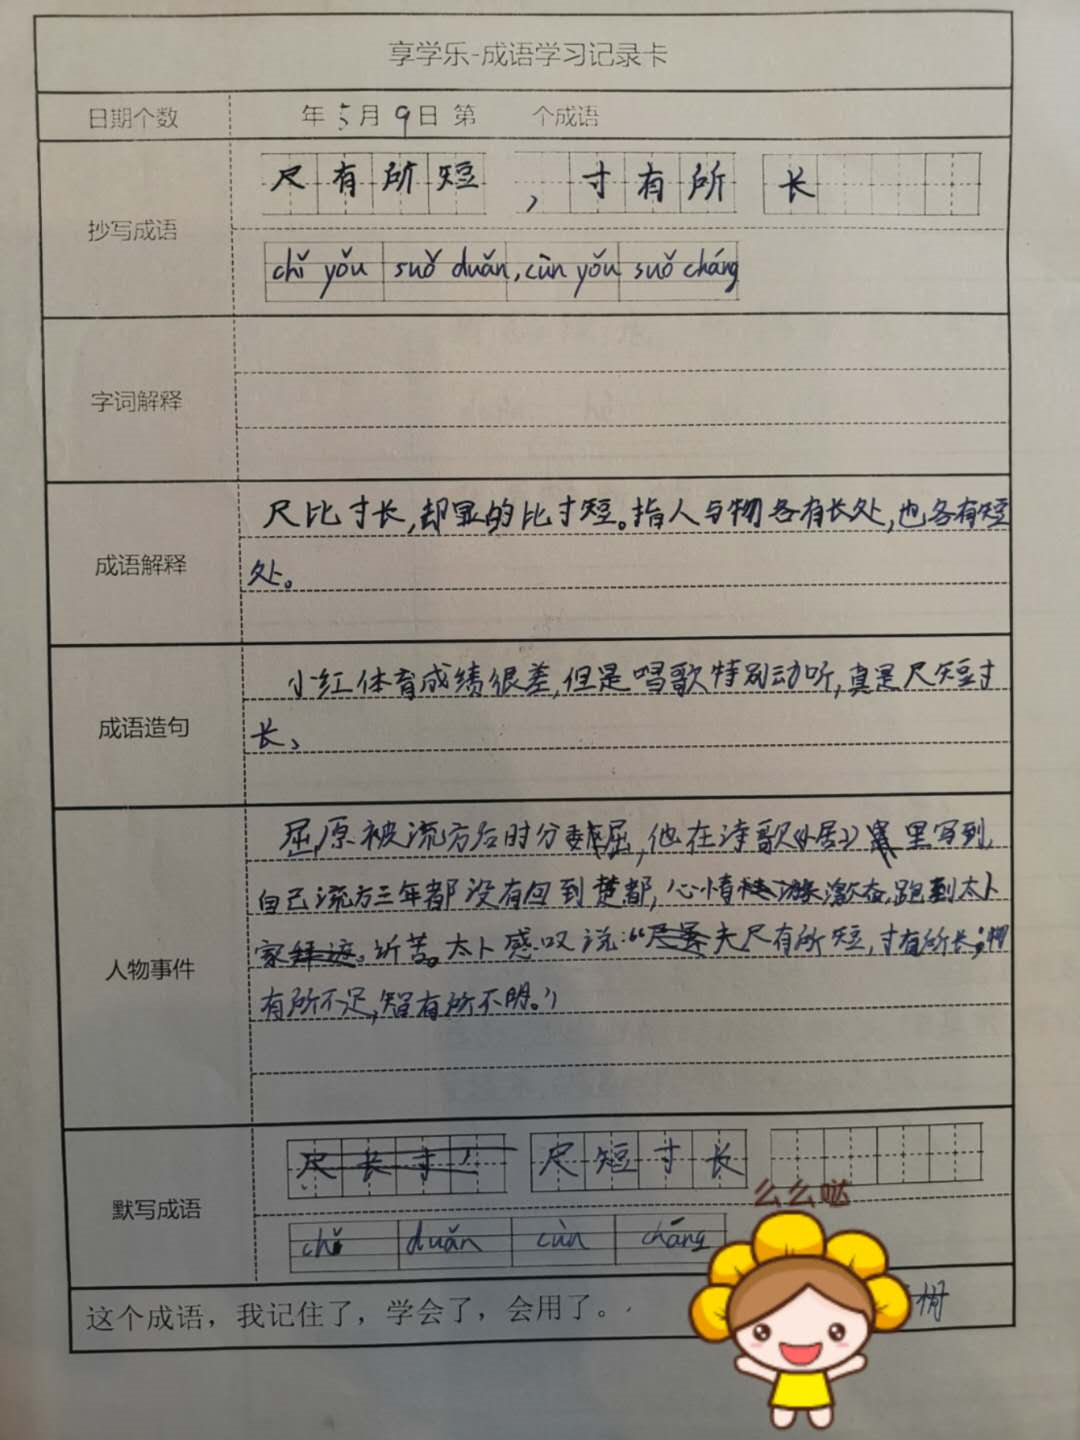 享学乐-成语学习记录卡
日期个数 年5月9日 第 个成语
抄写成语
尺有所短，寸有所长
chǐ yǒu suǒ duǎn, cùn yǒu suǒ cháng
字词解释
成语解释
尺比寸长,却显的比寸短。指人与物各有长处,也各有短
处。
成语造句
小红体育成绩很差,但是唱歌特别动听,真是尺短寸
长、
人物事件
屈原被流方后时分 屈,他在诗歌《卜居》 里写到,
自己流方三年都没有回到楚都,心情 激奋,跑到太卜
家 诉苦。太卜感叹说:“ 夫尺有所短,寸有所长;物
有所不足,智有所不明。”
默写成语
尺长寸 尺短寸长
chǐ duǎn cùn cháng
么么哒
这个成语，我记住了，学会了，会用了。